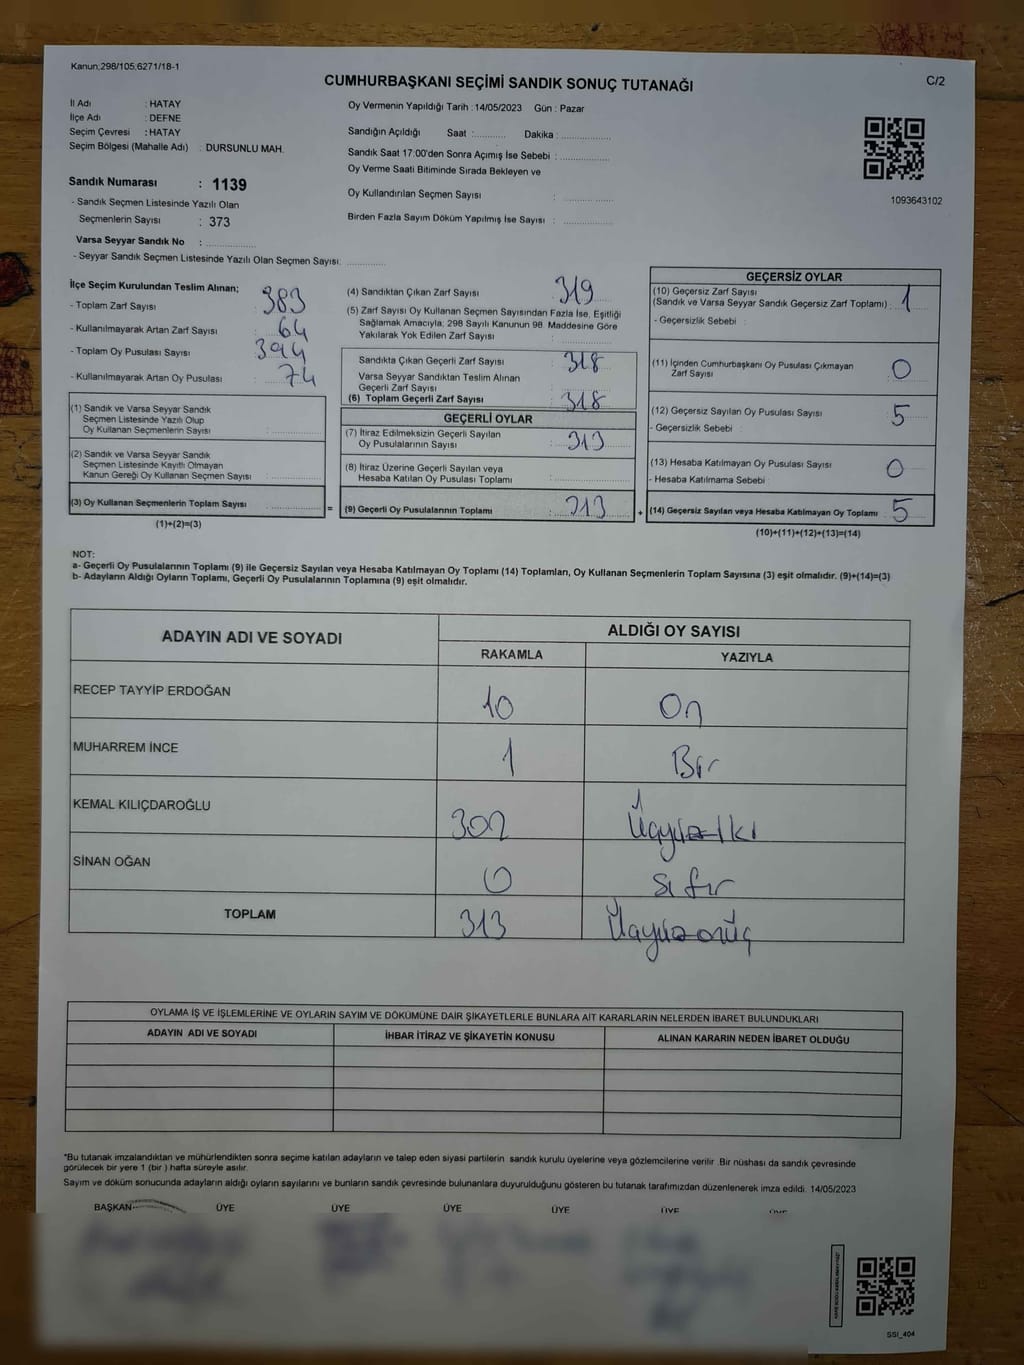 Kanun:298/105;6271/18-1
CUMHURBAŞKANI SEÇİMİ SANDIK SONUÇ TUTANAĞI
C/2
İl Adı : HATAY
İlçe Adı : DEFNE
Seçim Çevresi : HATAY
Seçim Bölgesi (Mahalle Adı) : DURSUNLU MAH.
Oy Vermenin Yapıldığı Tarih : 14/05/2023 Gün : Pazar
Sandığın Açıldığı Saat :........... Dakika :....................
Sandık Saat 17:00'den Sonra Açımış İse Sebebi :....................
Oy Verme Saati Bitiminde Sırada Bekleyen ve
Oy Kullandırılan Seçmen Sayısı :....................
Birden Fazla Sayım Döküm Yapılmış İse Sayısı :....................
1093643102
Sandık Numarası : 1139
- Sandık Seçmen Listesinde Yazılı Olan
Seçmenlerin Sayısı : 373
Varsa Seyyar Sandık No :....................
- Seyyar Sandık Seçmen Listesinde Yazılı Olan Seçmen Sayısı:...............
İlçe Seçim Kurulundan Teslim Alınan;
- Toplam Zarf Sayısı : 383
- Kullanılmayarak Artan Zarf Sayısı : 64
- Toplam Oy Pusulası Sayısı : 394
- Kullanılmayarak Artan Oy Pusulası : 74
(1) Sandık ve Varsa Seyyar Sandık
Seçmen Listesinde Yazılı Olup
Oy Kullanan Seçmenlerin Sayısı :....................
(2) Sandık ve Varsa Seyyar Sandık
Seçmen Listesinde Kayıtlı Olmayan
Kanun Gereği Oy Kullanan Seçmen Sayısı :....................
(3) Oy Kullanan Seçmenlerin Toplam Sayısı :....................
(1)+(2)=(3)
=
(4) Sandıktan Çıkan Zarf Sayısı : 319
(5) Zarf Sayısı Oy Kullanan Seçmen Sayısından Fazla İse, Eşitliği
Sağlamak Amacıyla; 298 Sayılı Kanunun 98. Maddesine Göre
Yakılarak Yok Edilen Zarf Sayısı :....................
Sandıkta Çıkan Geçerli Zarf Sayısı : 318
Varsa Seyyar Sandıktan Teslim Alınan
Geçerli Zarf Sayısı
(6) Toplam Geçerli Zarf Sayısı : 318
GEÇERLİ OYLAR
(7) İtiraz Edilmeksizin Geçerli Sayılan
Oy Pusulalarının Sayısı : 313
(8) İtiraz Üzerine Geçerli Sayılan veya
Hesaba Katılan Oy Pusulası Toplamı :....................
(9) Geçerli Oy Pusulalarının Toplamı : 313
+
GEÇERSİZ OYLAR
(10) Geçersiz Zarf Sayısı
(Sandık ve Varsa Seyyar Sandık Geçersiz Zarf Toplamı) : 1
- Geçersizlik Sebebi :
(11) İçinden Cumhurbaşkanı Oy Pusulası Çıkmayan
Zarf Sayısı 0
(12) Geçersiz Sayılan Oy Pusulası Sayısı : 5
- Geçersizlik Sebebi :
(13) Hesaba Katılmayan Oy Pusulası Sayısı : 0
- Hesaba Katılmama Sebebi :
(14) Geçersiz Sayılan veya Hesaba Katılmayan Oy Toplamı : 5
(10)+(11)+(12)+(13)=(14)
NOT:
a- Geçerli Oy Pusulalarının Toplamı (9) ile Geçersiz Sayılan veya Hesaba Katılmayan Oy Toplamı (14) Toplamları, Oy Kullanan Seçmenlerin Toplam Sayısına (3) eşit olmalıdır. (9)+(14)=(3)
b- Adayların Aldığı Oyların Toplamı, Geçerli Oy Pusulalarının Toplamına (9) eşit olmalıdır.
ADAYIN ADI VE SOYADI
ALDIĞI OY SAYISI
RAKAMLA YAZIYLA
RECEP TAYYİP ERDOĞAN 10 On
MUHARREM İNCE 1 Bir
KEMAL KILIÇDAROĞLU 302 Üçyüziki
SİNAN OĞAN 0 Sıfır
TOPLAM 313 Üçyüzonüç
OYLAMA İŞ VE İŞLEMLERİNE VE OYLARIN SAYIM VE DÖKÜMÜNE DAİR ŞİKAYETLERLE BUNLARA AİT KARARLARIN NELERDEN İBARET BULUNDUKLARI
ADAYIN ADI VE SOYADI İHBAR İTİRAZ VE ŞİKAYETİN KONUSU ALINAN KARARIN NEDEN İBARET OLDUĞU
*Bu tutanak imzalandıktan ve mühürlendikten sonra seçime katılan adayların ve talep eden siyasi partilerin sandık kurulu üyelerine veya gözlemcilerine verilir. Bir nüshası da sandık çevresinde
görülecek bir yere 1 (bir ) hafta süreyle asılır.
Sayım ve döküm sonucunda adayların aldığı oyların sayılarını ve bunların sandık çevresinde bulunanlara duyurulduğunu gösteren bu tutanak tarafımızdan düzenlenerek imza edildi. 14/05/2023
BAŞKAN ÜYE ÜYE ÜYE ÜYE ÜYE ÜYE
SSI_404